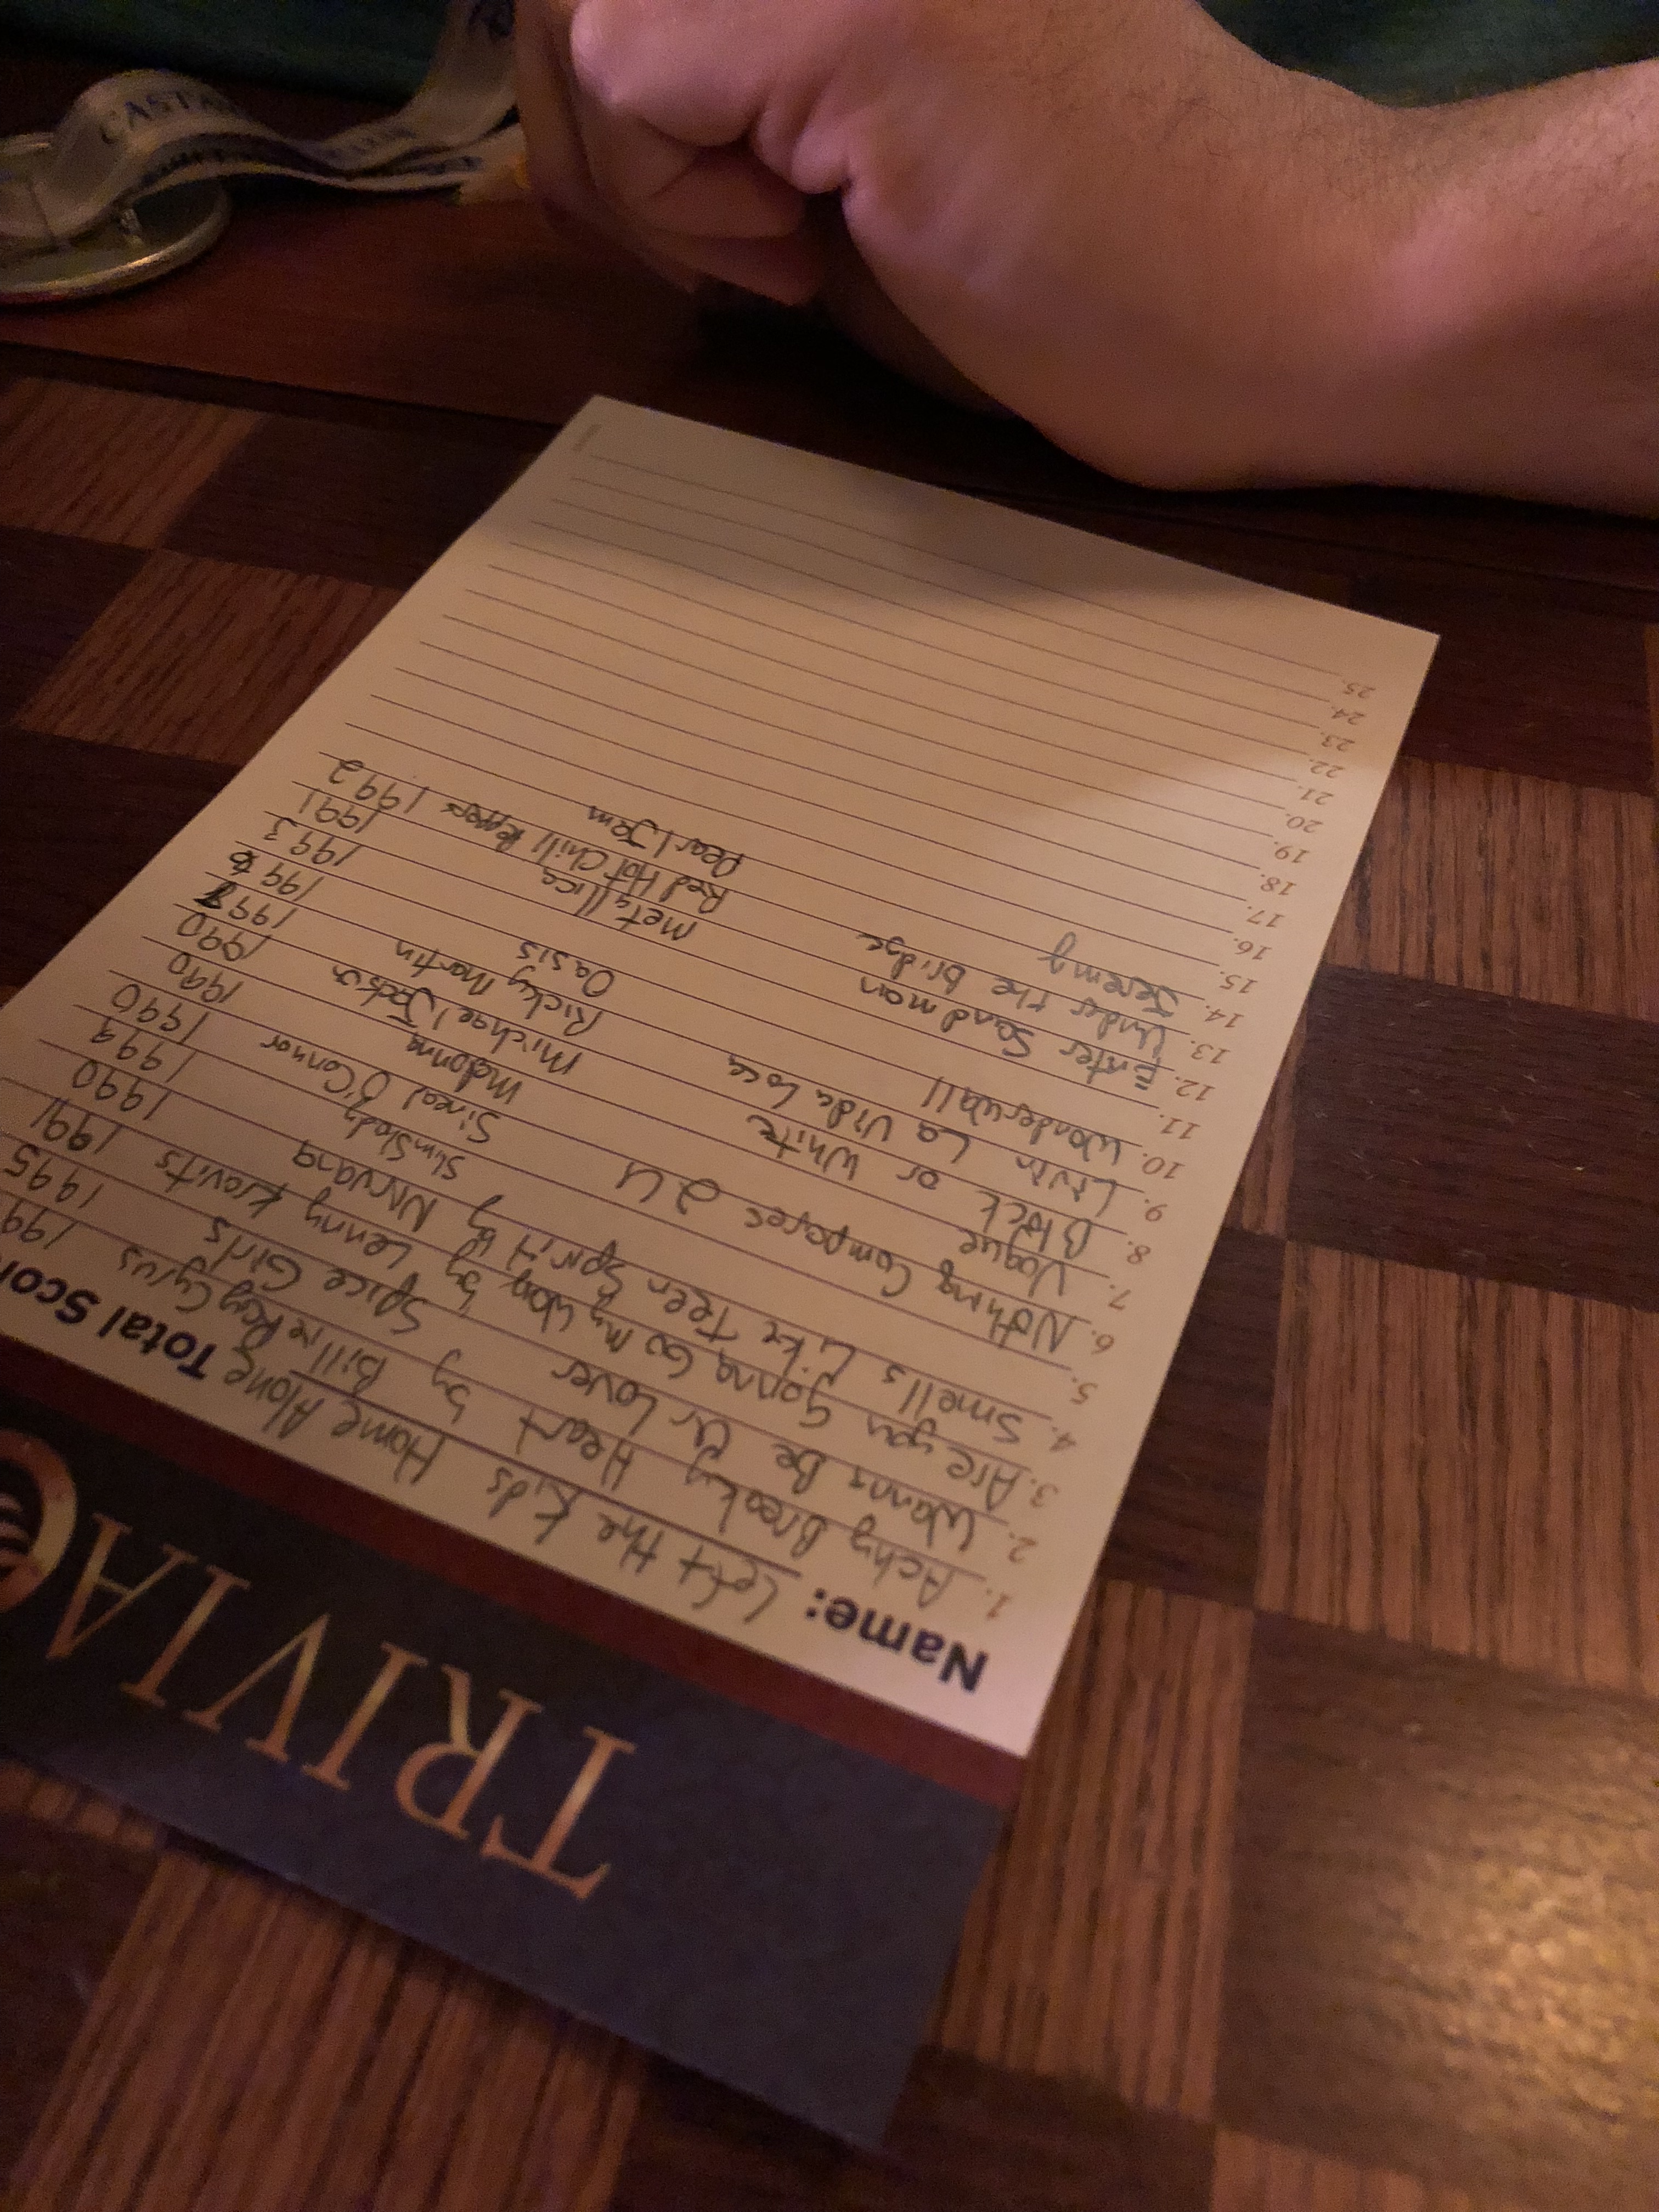 TRIVIA
Name: Left the Kids Home Alone Total Scor
1. Achy Breaky Heart by Billne Ray Cyrus 199
2. Wanna Be Ur Lover Spice Girls 1995
3. Are you gonna Go My Way by Lenny Kravits 1991
4. Smells Like Teen Spirit by Nirvana 1990
5. Slim Shady 1999
6. Nothing Compares 2 U Sinead O'Connor 1990
7. Vogue Madonna 1990
8. Black or White Michael Jackson 1990
9. Livin La Vida Loca Ricky Martin
10. Wonderwall Oasis
11.
12. Enter Sandman Metallica 1993
13. Under the Bridge Red Hot Chili Peppers 1991
14. Jeremy Pearl Jam 1992
15.
16.
17.
18.
19.
20.
21.
22.
23.
24.
25.